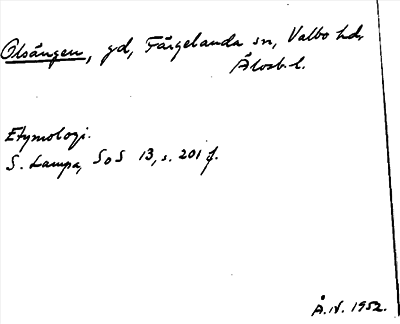 Olsängen, gd, Färgelanda sn, Valbo hd,
Älvsb. l.
Etymologi.
S. Lampa, SoS 13, s. 201 f.
Å.N. 1952.